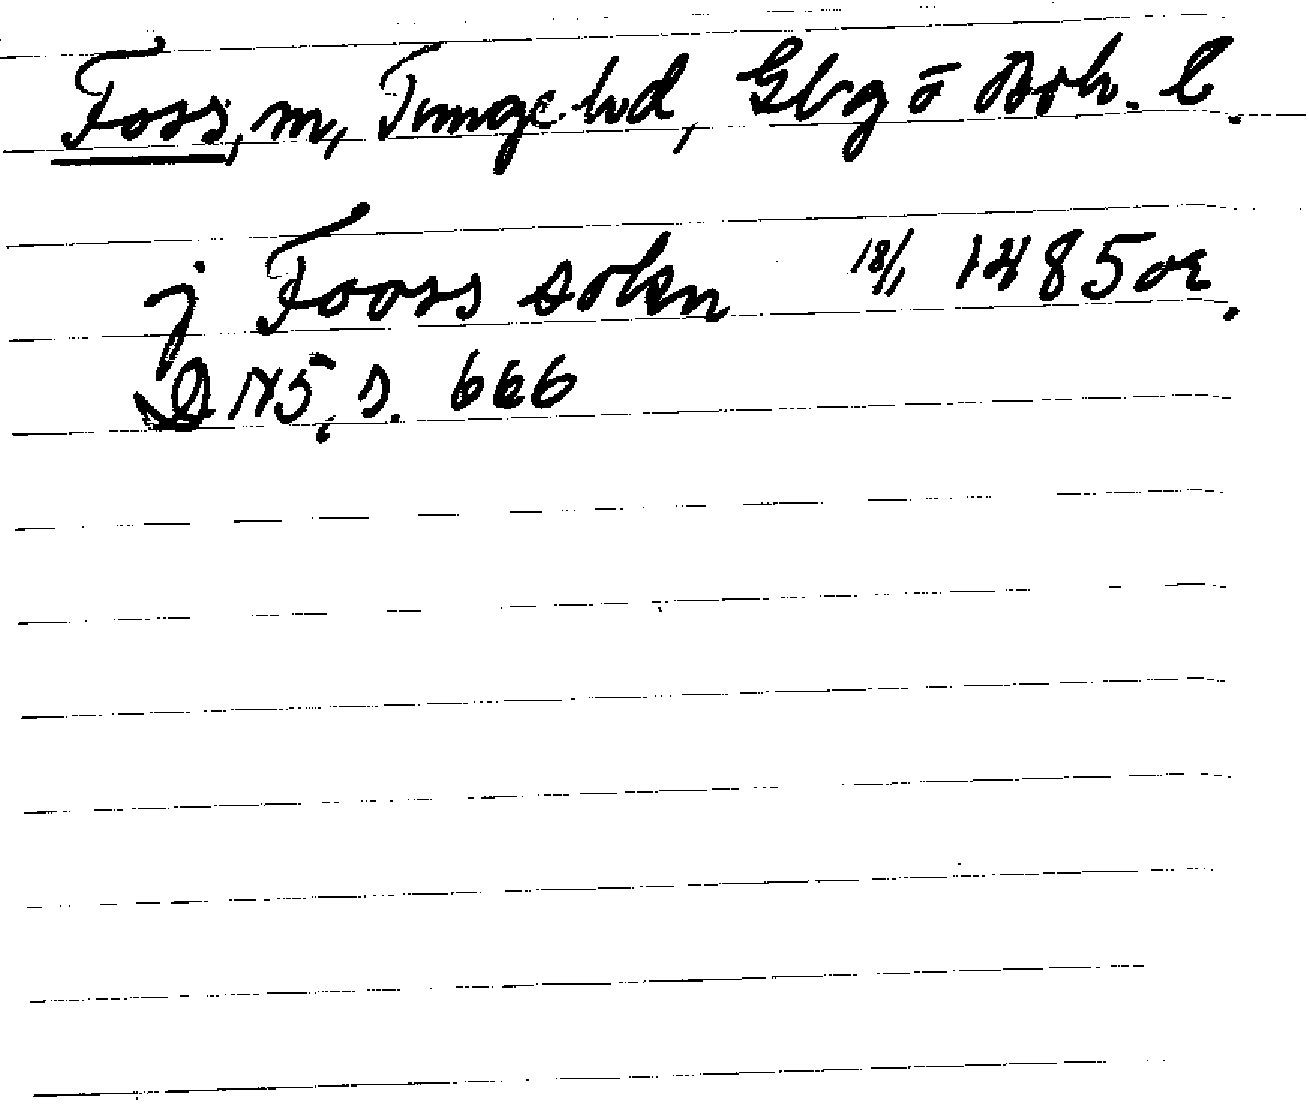 Foss, sn, Tunge hd, Gbg o Boh. l.
j Fooss sokn 18/1 1485 or.
DN 5, s. 666